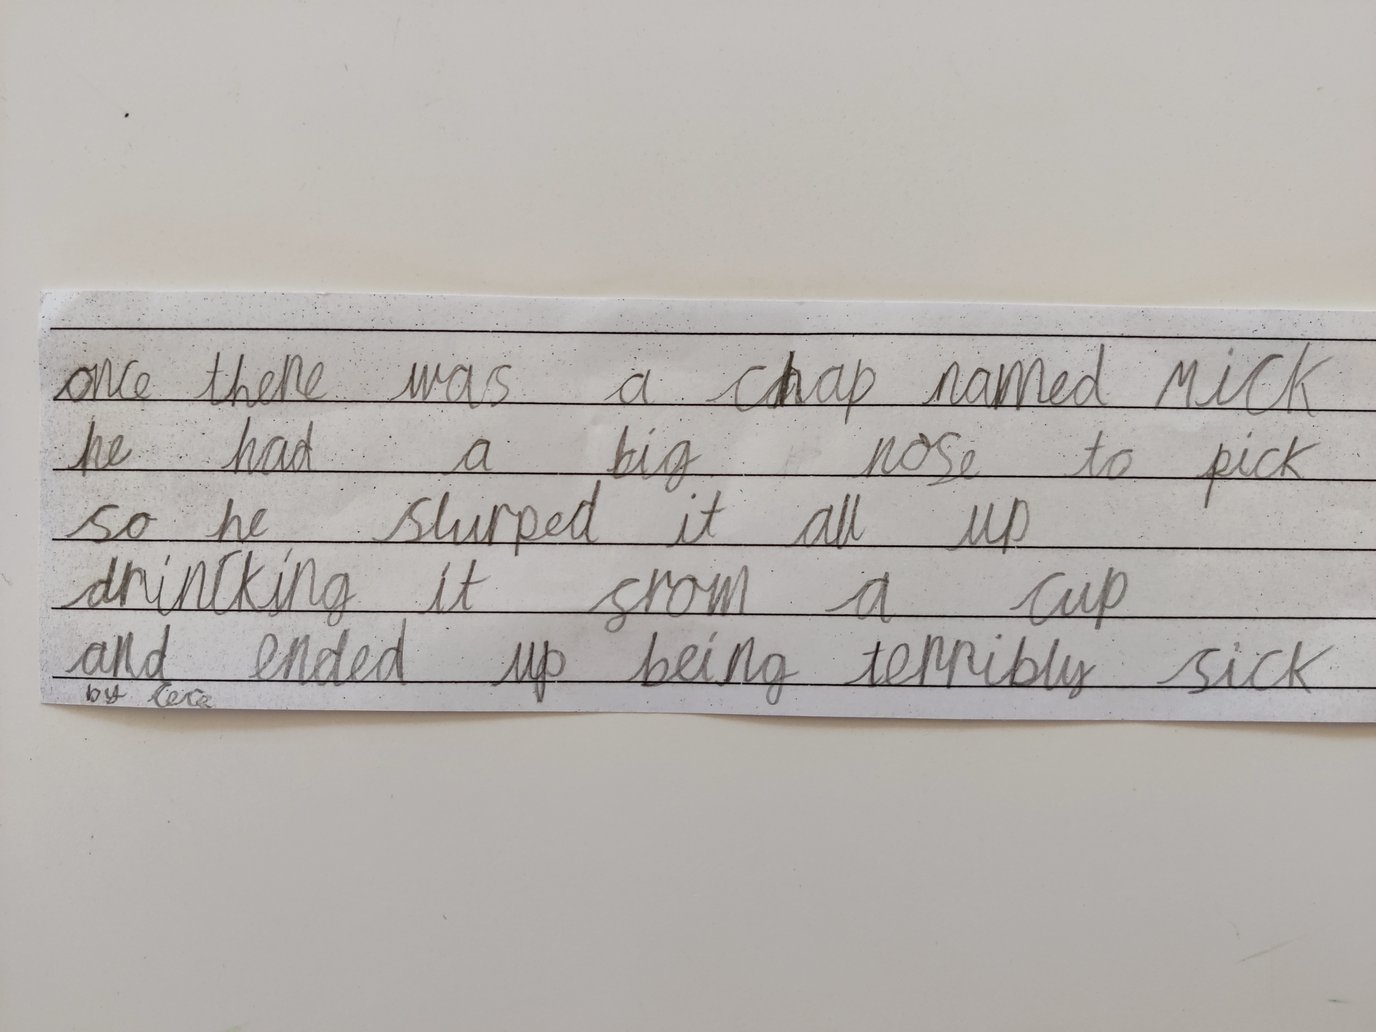 once there was a chap named Mick
he had a big nose to pick
so he slurped it all up
drincking it from a cup
and ended up being terribly sick
by